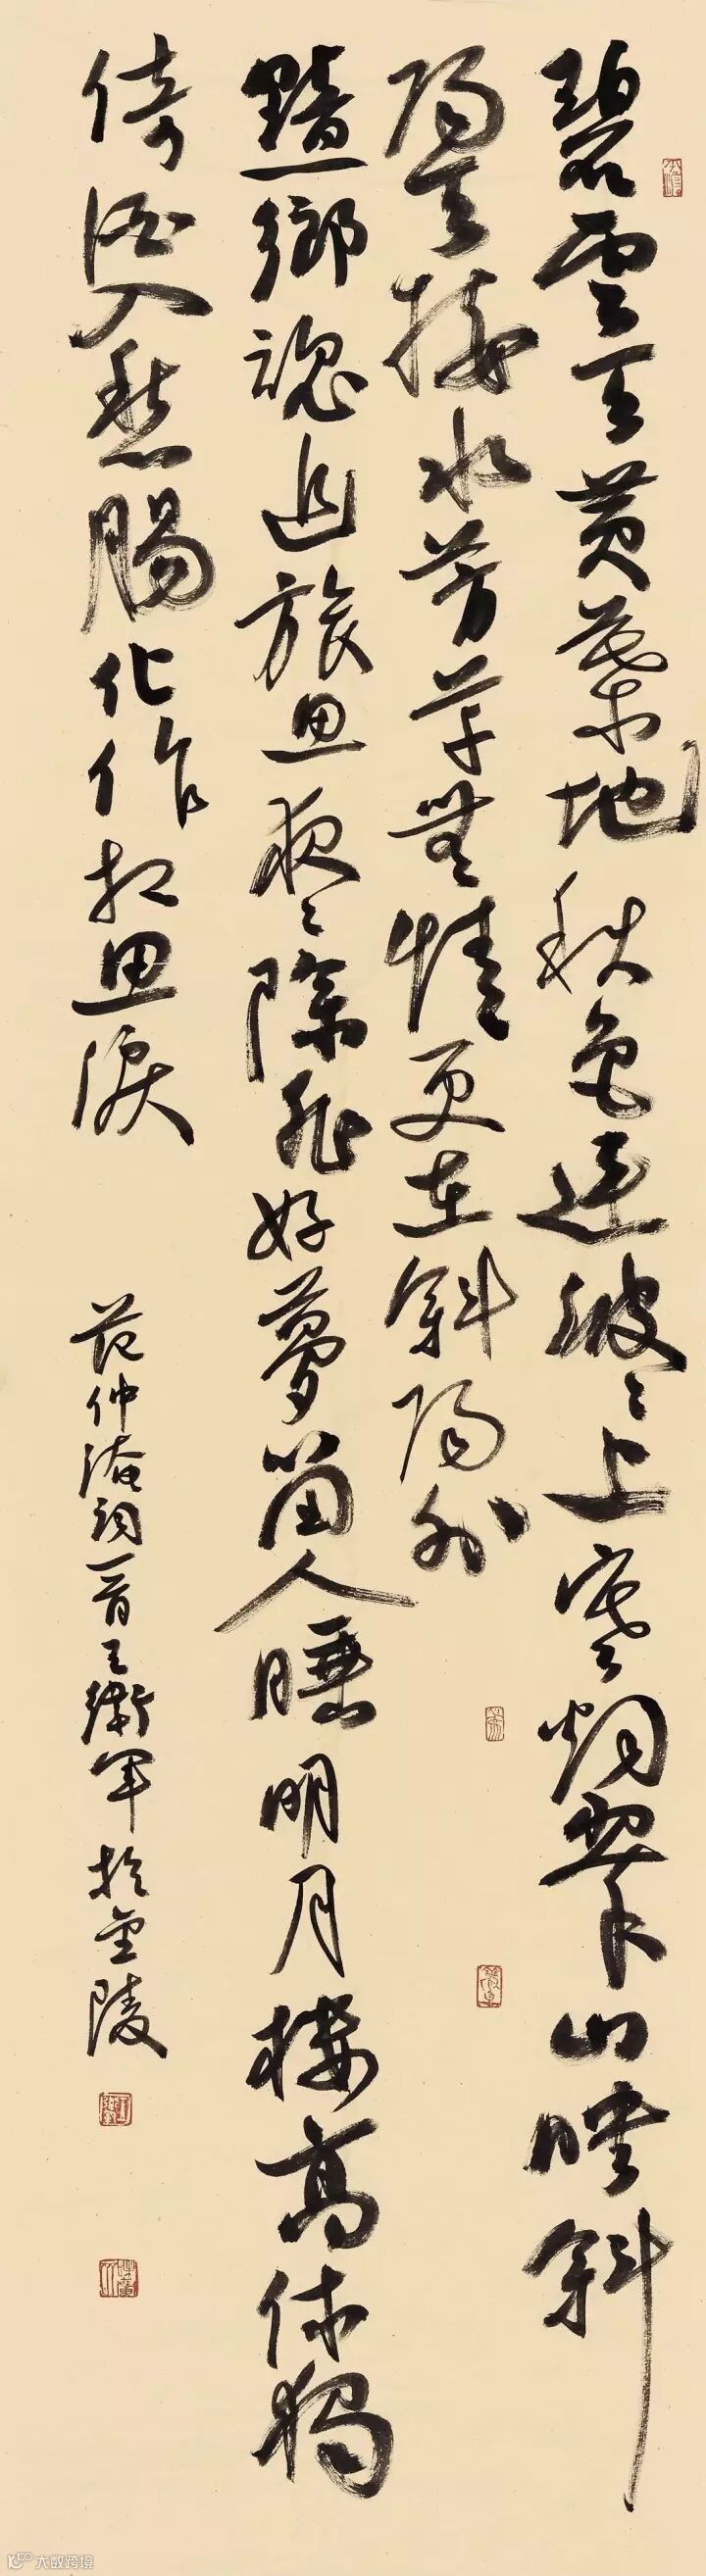 碧雲天黄葉地秋色連波〻上寒烟翠山映斜
陽天接水芳草無情更在斜陽外
黯鄉魂追旅思夜〻除非好夢留人睡明月樓高休獨
倚酒入愁腸化作相思淚
范仲淹詞一首王衛軍於金陵
大数跨境